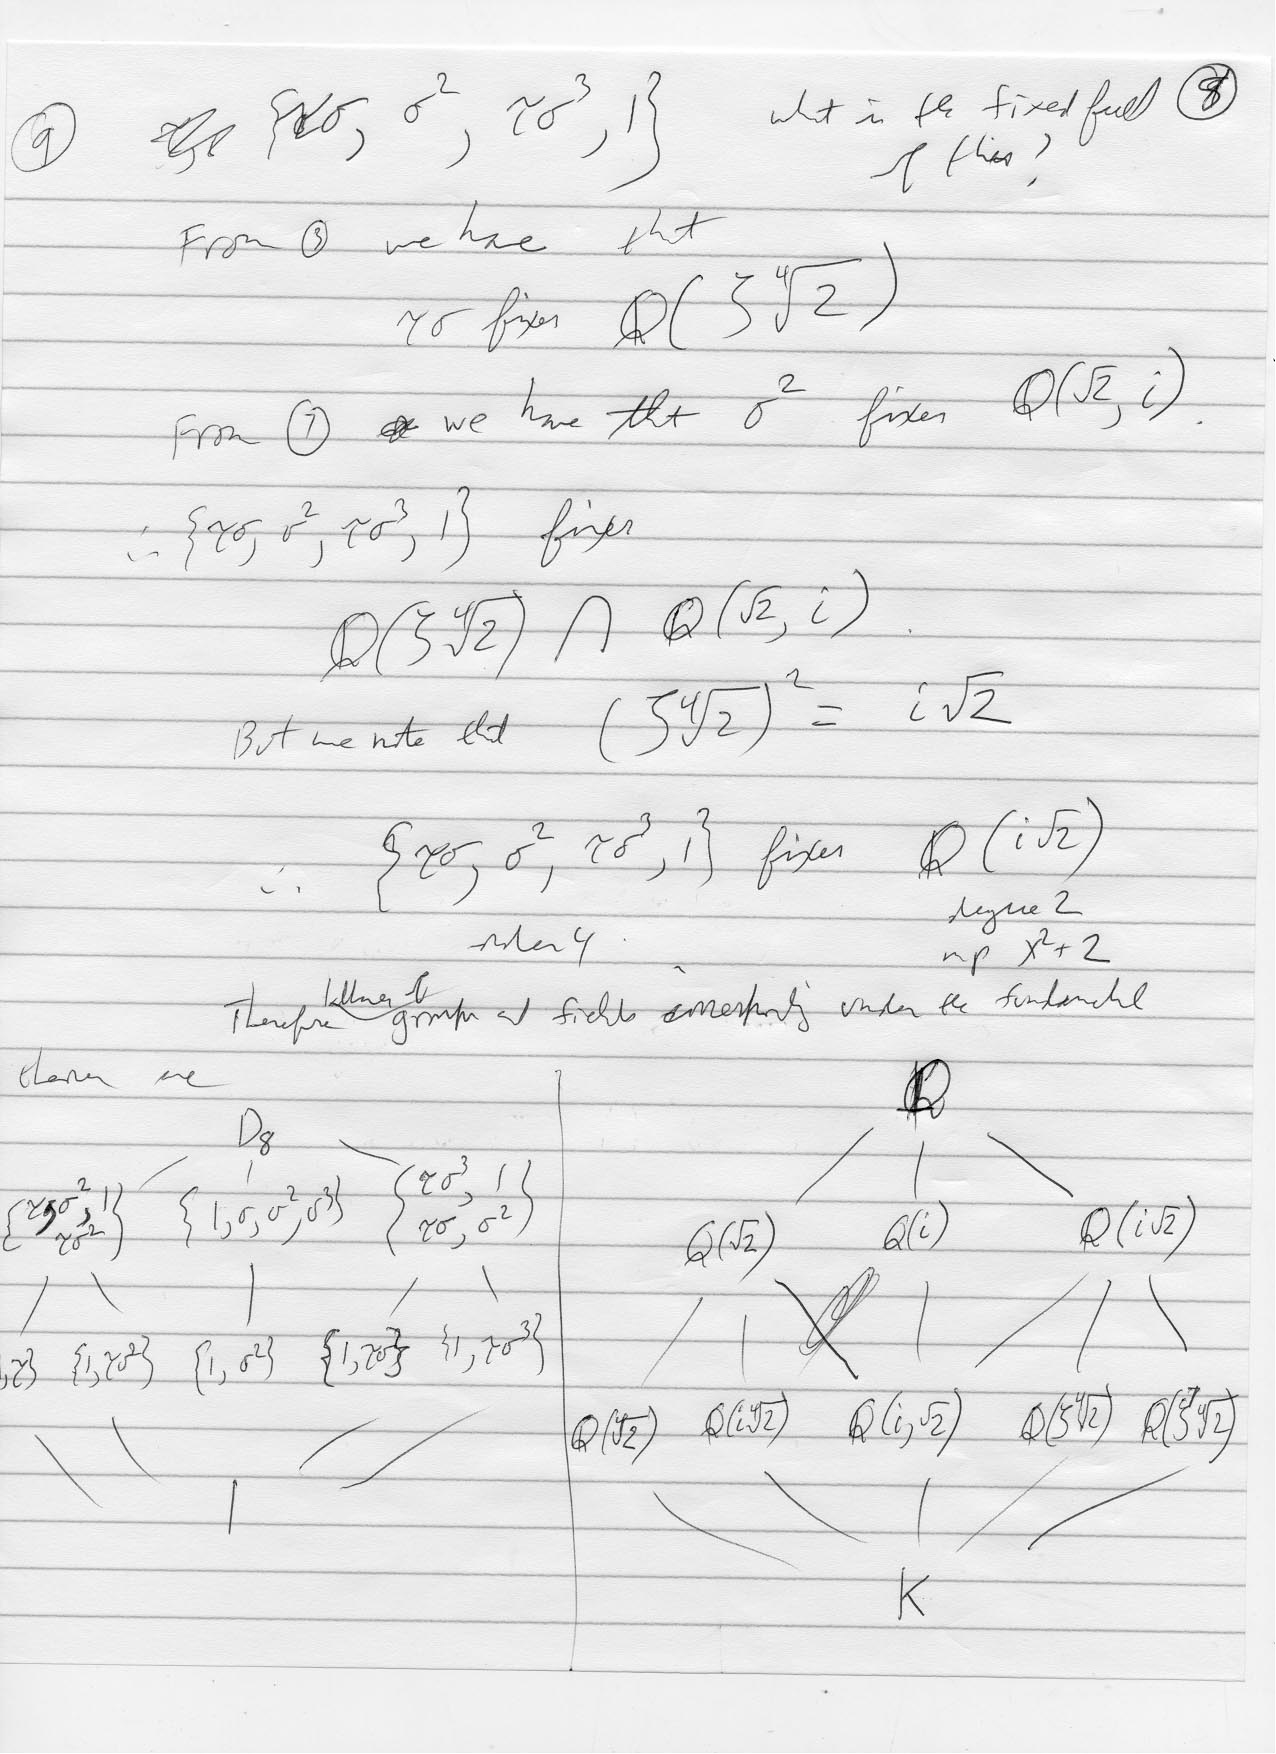 ⑨ {τσ, σ², τσ³, 1} what is the fixed field ⑧
of this?
From ③ we have that
τσ fixes Q(ζ∜2)
From ⑦ we have that σ² fixes Q(√2, i).
∴ {τσ, σ², τσ³, 1} fixes
Q(ζ∜2) ∩ Q(√2, i).
But we note that (ζ∜2)² = i√2
∴ {τσ, σ², τσ³, 1} fixes Q(i√2)
order 4. degree 2
mp x²+2
lattices of
Therefore groups and fields corresponding under the fundamental
theorem are
D₈ Q
{τ, σ², 1 {1, σ, σ², σ³} {τσ³, 1
τσ²} τσ, σ²} Q(√2) Q(i) Q(i√2)
, τ} {1, τσ²} {1, σ²} {1, τσ} {1, τσ³}
Q(∜2) Q(i∜2) Q(i, √2) Q(ζ∜2) Q(ζ∜2)
1
K